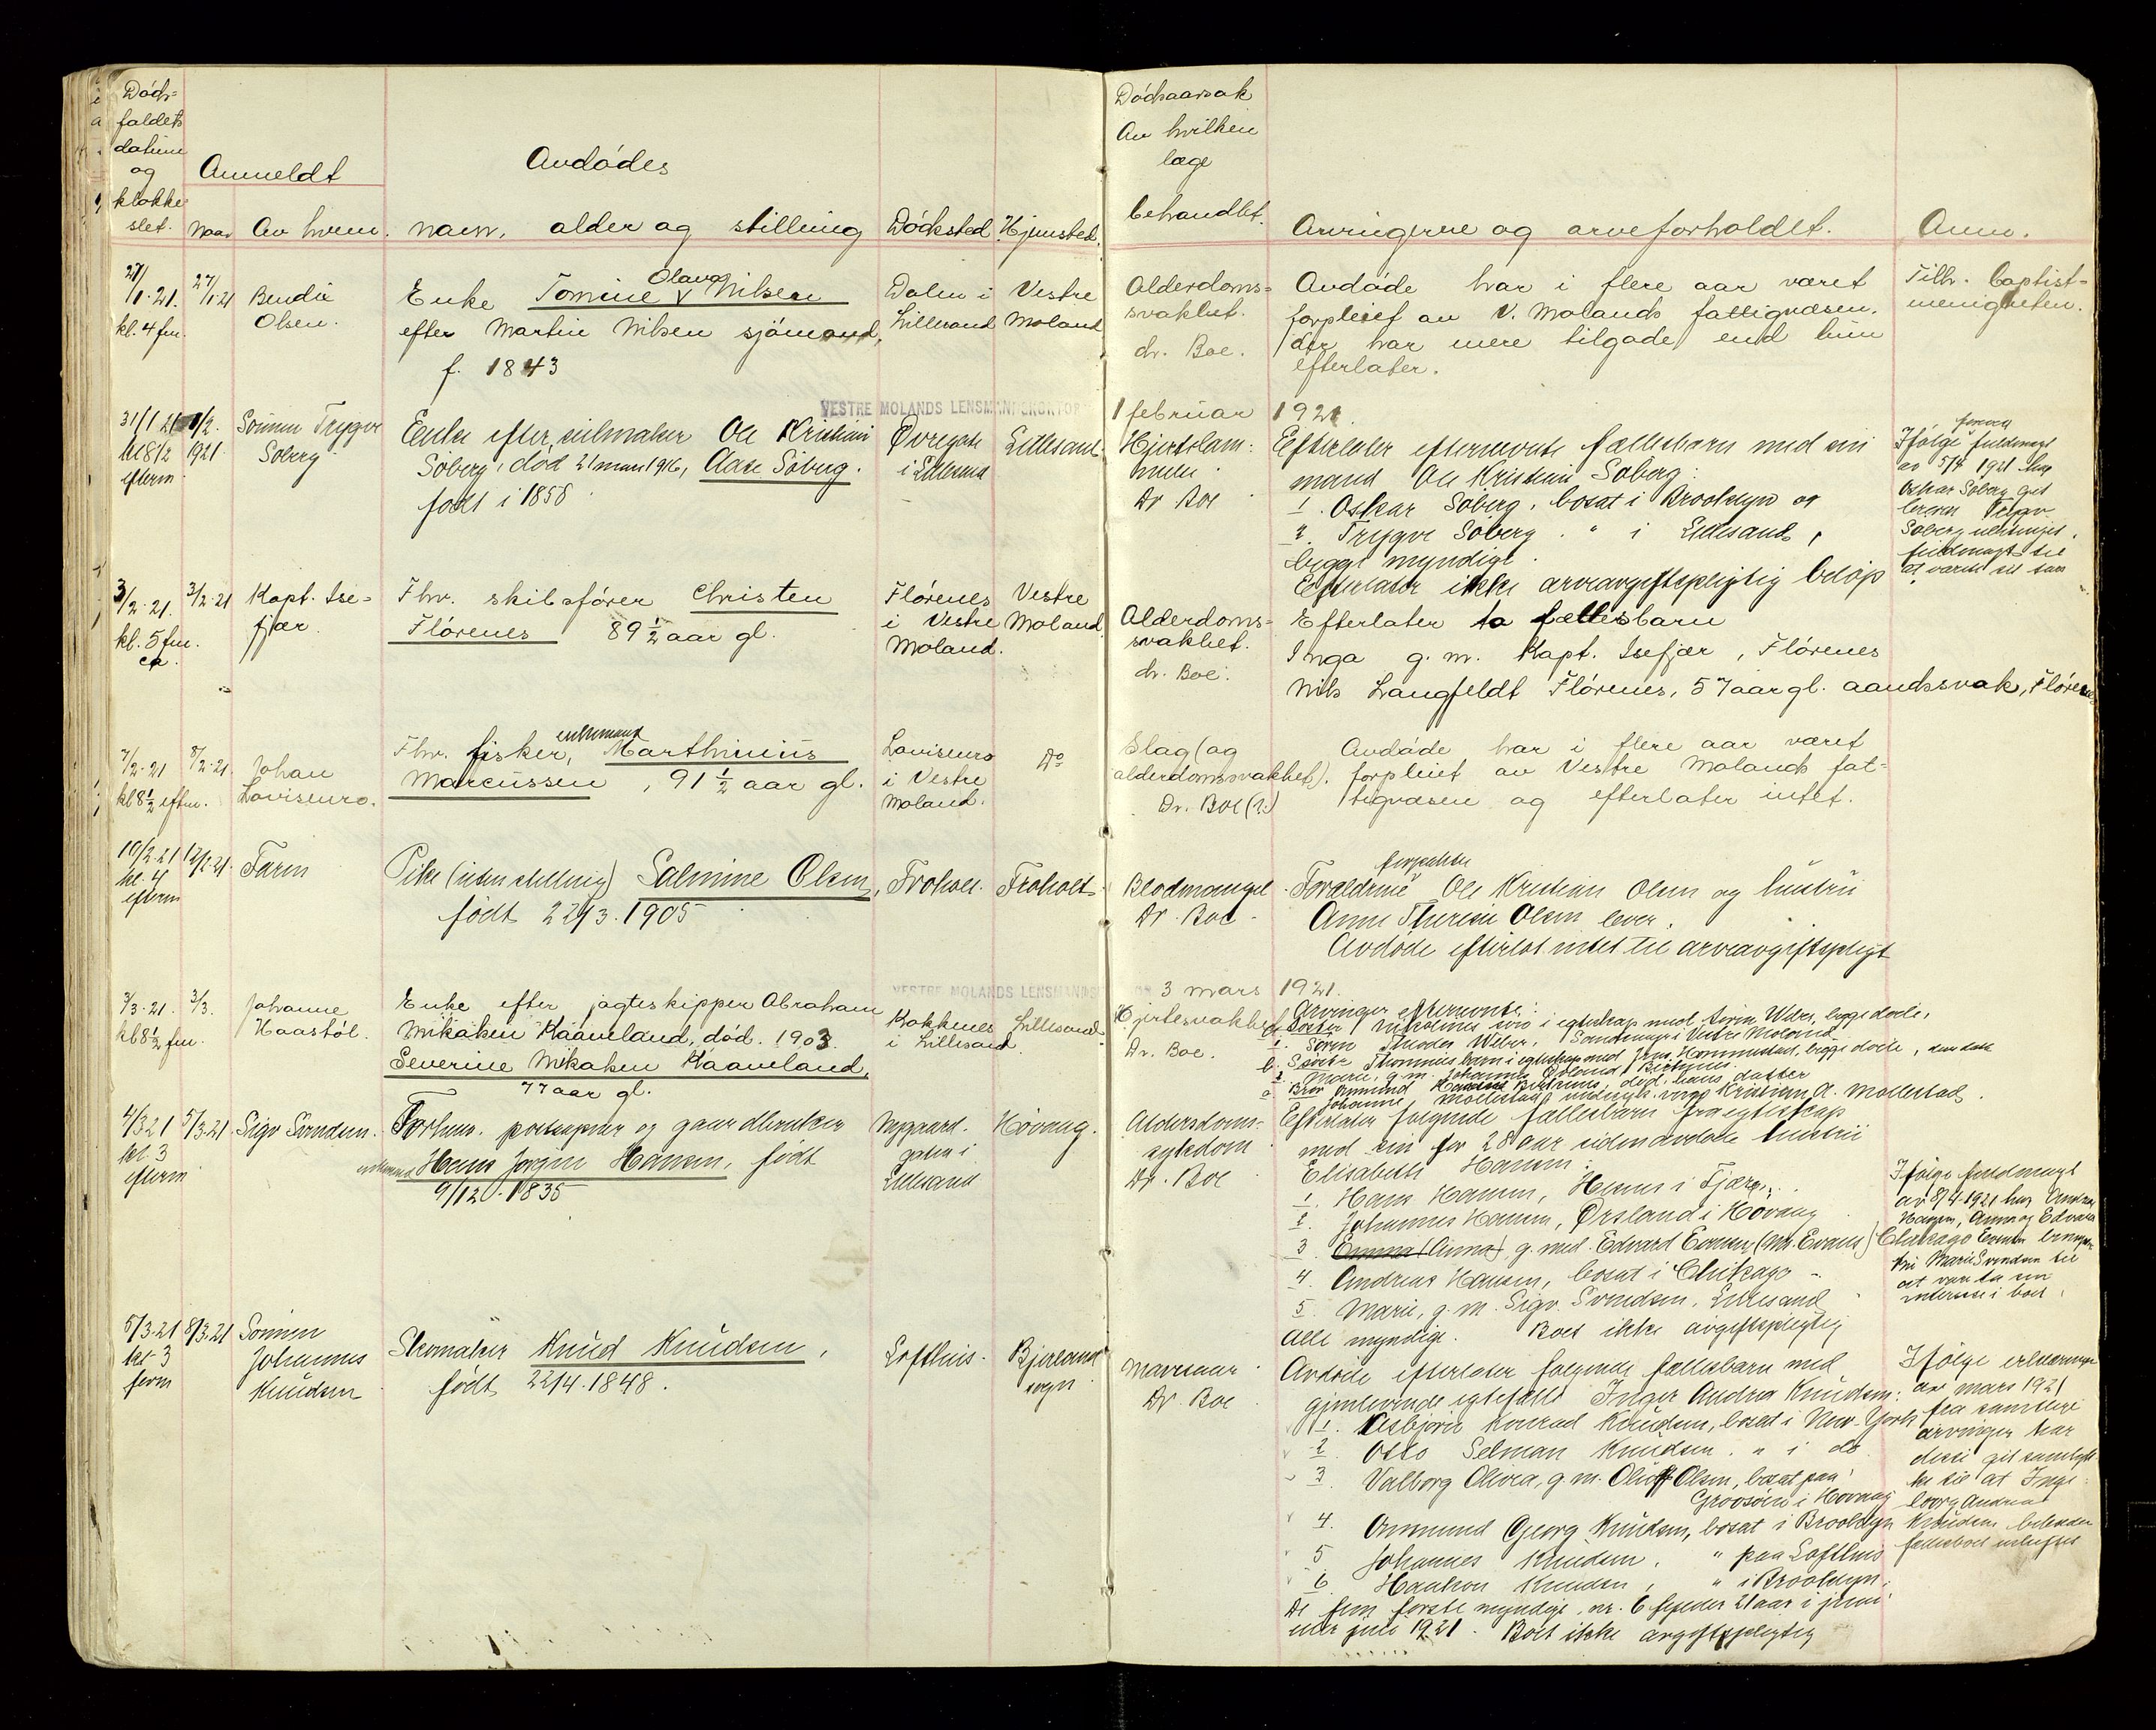 Døds-
faldets
datum
og
klokke
slet.
Anmeldt
Naar
Av hvem.
Avdødes
navn, alder og stilling
Dødssted.
Hjemsted.
Dødsaarsak
Av hvilken
læge
behandlet.
Arvingerne og arveforholdet.
Anm.
27/1.21.
kl. 4 fm.
27/1.21
Bendix
Olsen.
Enke Tomine Olava Nilsen
efter Martin Nilsen sjømand,
f. 1843
Dalen i
Lillesand
Vestre
Moland
Alderdoms-
svakhet.
dr. Boe.
Avdøde har i flere aar været
forpleiet av V. Molands fattigvæsen.
der har mere tilgode end hun
efterlater.
Tilh. Baptist-
menigheten.
VESTRE MOLANDS LENSMANDSKONTOR
1 februar 1921.
31/1 21
kl 8 1/2
efterm
1/2.
1921
Sønnen Trygve
Søberg
Enke efter seilmaker Ole Kristian
Søberg, død 21 mars 1916, Aase Søberg.
født i 1858
Øvregate
i Lillesand
Lillesand
Hjertelam-
melse.
Dr Boe
Efterlater efternævnte fællesbarn med sin
mand Ole Kristian Søberg:
1. Oskar Søberg, bosat i Brooklyn og
2. Trygve Søberg " i Lillesand,
begge myndige.
Efterlater ikke arveavgiftspligtig beløp
Ifølge fuldmagt
av 5/4 1921 har
Oskar Søberg git
Søberg
fuldmagt til
3/2.21.
kl. 5 fm.
ca.
3/2.21
Kapt. Ise-
fjær.
Fhv. skibsfører Christen
Flörenes 89 1/2 aar gl.
Flörenes
i Vestre
Moland.
Vestre
Moland.
Alderdoms-
svakhet.
dr. Boe.
Efterlater to fællesbarn
Inga g. m. Kapt. Isefjær, Flörenes
Nils Langfeldt Flörenes, 57 aar gl. aandssvak, Flörenes
7/2.21
kl 8 1/2 eftm.
8/2.21.
Johan
Lovisenro.
Fhv. fisker, enkemand Marthinius
Marcussen, 91 1/2 aar gl.
Lovisenro
i Vestre
Moland.
Do
Slag (og
alderdomssvakhet).
Dr. Boe (?)
Avdøde har i flere aar været
forpleiet av Vestre Molands fat-
tigvæsen og efterlater intet.
10/2.21
kl. 4
efterm
12/2.21.
Faren
Pike (uten stilling) Salmine Olsen,
født 22/3.1905
Froholt.
Froholt
Blodmangel
Dr. Boe
Forældrene forpakter Ole Kristian Olsen og hustru
Anne Therese Olsen lever.
Avdøde efterlot intet til arveavgiftspligt
VESTRE MOLANDS LENSMANDS
3 mars 1921.
3/3.21.
kl 8 1/2 fm.
3/3.
Johanne
Haastöl.
Enke efter jagteskipper Abraham
Mikaksen Kaaveland, død. 1903
Severine Mikaksen Kaaveland,
77 aar gl.
Kokkenes
i Lillesand.
Lillesand.
Hjertesvakhet
Dr. Boe.
Arvinger efternevnte:
a. Søster i egteskap med Weber, begge døde,
1. Søren Weber, i Vestre Moland
b. barn i egteskap med Jens Hommestad, begge døde,
1. Marie, g. m. Johannes
c. Bror død, hans datter
Johanne Møllestad, verge Kristian A. Møllestad.
4/3 21
kl 3
efterm
5/3.21.
Sigv Svendsen.
Forhenv. postaapner og gaardbruker
enkemand Hans Jørgen Hansen, født
9/12.1835
Nygaards.
gaten i
Lillesand
Høvaag.
Alderdoms-
sykdom
Dr. Boe
Efterlater følgende fællesbarn fra egteskap
med sin for 28 aar siden avdøde hustru
Elisabeth Hansen:
1. Hans Hansen, i Fjære.
2. Johannes Hansen, Ørsland i Høvaag
3. Emma (Anna), g. med. Edvard Evensen (am. Evans) Chicago
4. Andreas Hansen, bosat i Chicago
5. Marie, g. m. Sigv. Svendsen, Lillesand
alle myndige. Boet ikke avgiftspligtig
Ifølge fuldmagt
av 8/4.1921 har Andreas
Hansen, Anna og Edvard
Evensen
fru Marie Svendsen til
at vareta sin
interesse i boet.
6/3.21
kl 3
form
8/3.21
Sønnen
Johannes
Knudsen
Skomaker Knud Knudsen,
født 22/4.1848.
Lofthus.
Bjerland
sogn
Mavesaar
Dr. Boe
Avdøde efterlater følgende fællesbarn med
gjenlevende egtefælle Inger Andrea Knudsen:
1. Asbjørn Konrad Knudsen, bosat i New-York
2. Otto Selman Knudsen. " i do
3. Valborg Olivia, g. m. Oluf Olsen, bosat paa
Groosøen i Høvaag
4. Ommund Georg Knudsen, bosat i Brooklyn
5 Johannes Knudsen, " paa Lofthus
6 Haakon Knudsen, " i Brooklyn.
De fem første myndige, nr. 6 fylder 21 aar i juni
eller juli 1921. Boet ikke avgiftspligtig
Ifølge erklæringer
av mars 1921
fra samtlige
arvinger har
disse git samtyk-
ke til at Inge-
borg Andrea
Knudsen beholder
fællesboet uskiftet